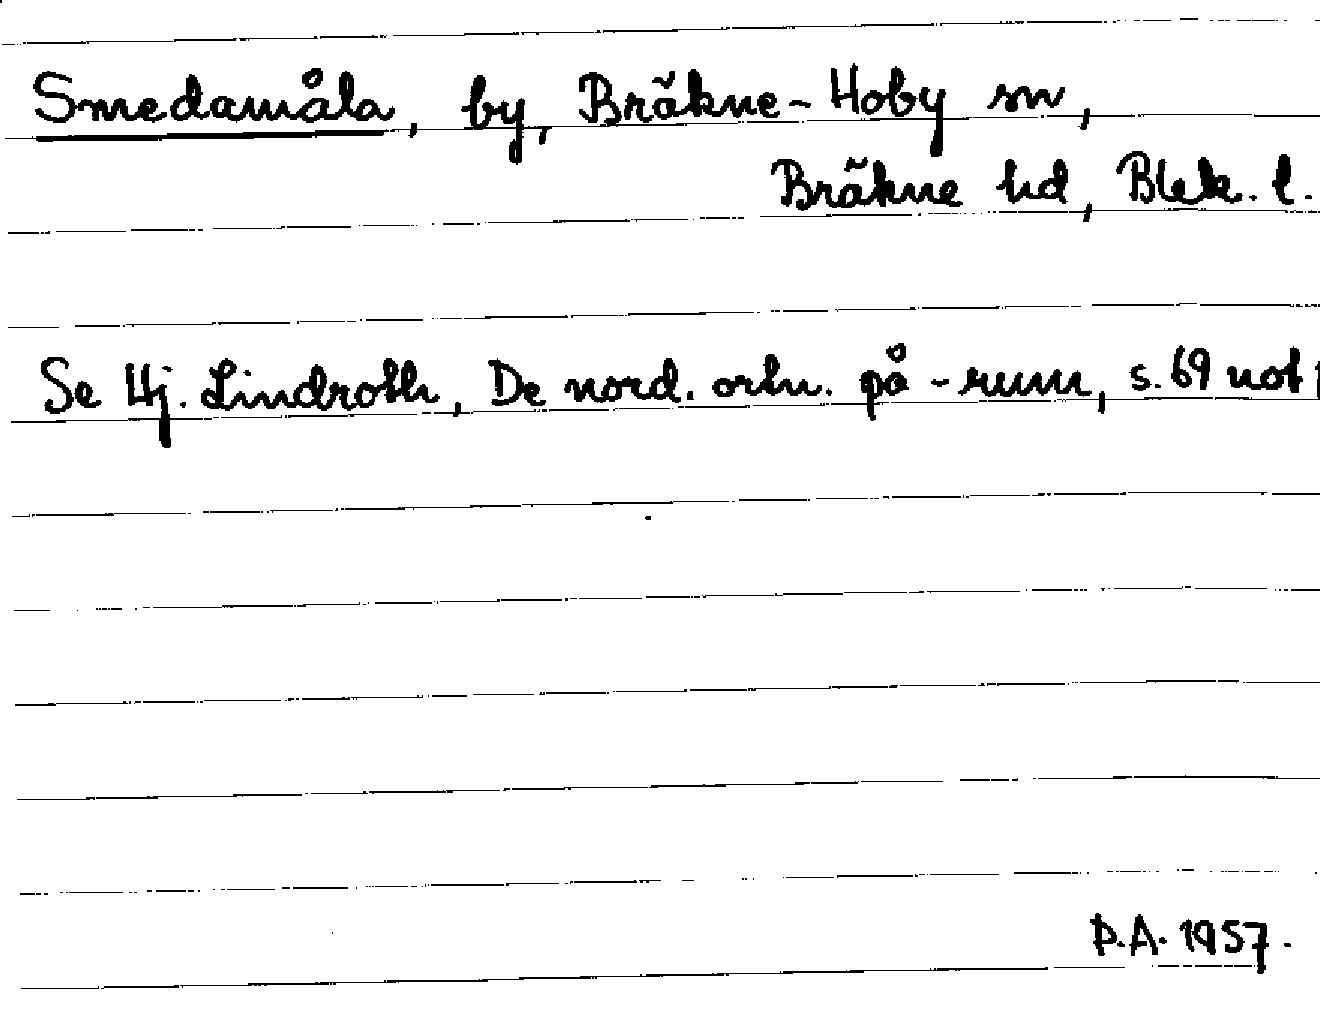 Smedamåla, by, Bräkne-Hoby sn,
Bräkne hd, Blek. l.
Se Hj. Lindroth, De nord. ortn. på -rum, s. 69 not
P.A. 1957.